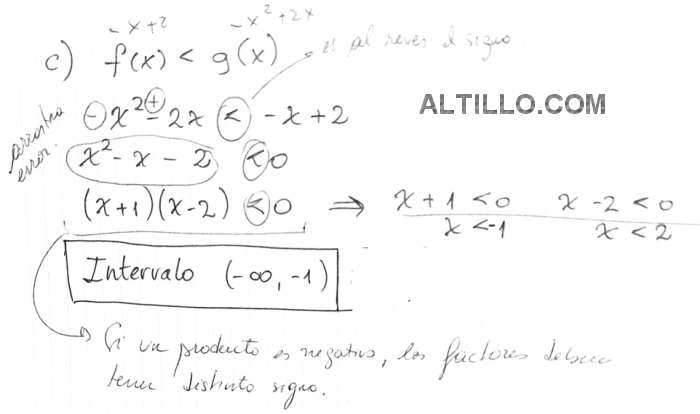 -x+2 -x²+2x
c) f(x) < g(x) es al reves el signo.
ALTILLO.COM
-x² ± 2x < -x+2
arrastra error.
x² - x - 2 < 0
(x+1)(x-2) < 0 ⇒ x+1 < 0 x-2 < 0
x < -1 x < 2
Intervalo (-∞, -1)
Si un producto es negativo, los factores deben
tener distinto signo.